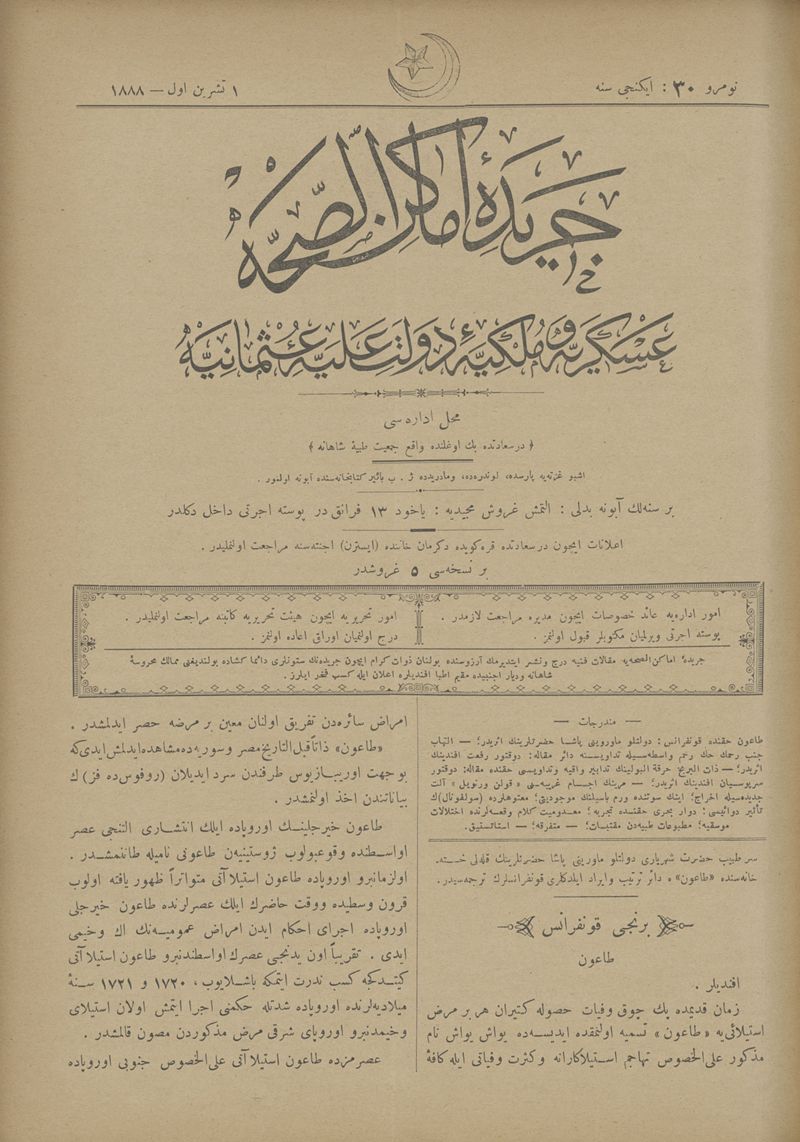 نومرو ٣٠ : ایكنجی سنه
١ تشرین اول — ١٨٨٨
جریدهٔ اماكن الصحّه
عسكریه و ملكیهٔ دولت علیهٔ عثمانیه
محل اداره سی
﴿ درسعادتده بك اوغلنده واقع جمعیت طبیهٔ شاهانه ﴾
اشبو غزته‌یه پارسده، لوندره‌ده، ومادریدده ژ . ب بائیر كتابخانه‌سنده آبونه اولنور .
بر سنه‌لك آبونه بدلی : التمش غروش مجیدیه : یاخود ١٣ فرانق در پوسته اجرتی داخل دكلدر
اعلانات ایچون درسعادتده قره‌كویده دكرمان خاننده (ایسترن) اجنته‌سنه مراجعت اولنملیدر .
بر نسخه‌سی ٥ غروشدر
امور اداره‌یه عائد خصوصات ایچون مدیره مراجعت لازمدر .
پوسته اجرتی ویرلمیان مكتوبلر قبول اولنمز .
امور تحریریه ایچون هیئت تحریریه كاتبنه مراجعت اولنملیدر .
درج اولنمیان اوراق اعاده اولنمز .
جریدهٔ اماكن‌الصحه‌یه مقالات فنیه درج ونشر ایتدیرمك آرزوسنده بولنان ذوات كرام ایچون جریده‌نك ستونلری دائما كشاده بولندیغنی ممالك محروسهٔ
شاهانه ودیار اجنبیده مقیم اطبا افندیلره اعلان ایله كسب فخر ایلرز .
— مندرجات —
طاعون حقنده قونفرانس : دولتلو ماورویانی پاشا حضرتلرینك اثریدر؛ — التهاب
جنب رحمك حك رحم واسطه‌سیله تداویسنه دائر مقاله : دوقتور رفعت افندینك
اثریدر؛ — ذات البریخ حرقة البولینك تدابیر واقیه وتداویسی حقنده مقاله : دوقتور
سرپوسیان افندینك اثریدر؛ — مرینك اجسام غریبه‌سی « قولن ورنویل » آلت
جدیده‌سیله اخراج؛ اینك سوتنده ورم باسیلنك موجودیتی؛ معتوهلرده (سولفونال)ك
تأثیر دوائیسی؛ دوار بحری حقنده تجربه؛ معدومیت كلام وقعه‌لرنده اختلالات
موسقیه؛ مطبوعات طبیه‌دن مقتبسات؛ — متفرقه؛ — استاتستیق.
سرطبیب حضرت شهریاری دولتلو ماورینی پاشا حضرتلرینك قله‌لی خسته.
خانه‌سنده «طاعون» ه دائر ترتیب وایراد ایلدكلری قونفرانسلرك ترجمه‌سیدر.
برنجی قونفرانس
طاعون
افندیلر .
زمان قدیمده پك چوق وفیات حصوله كتیران هر بر مرض
استیلائی‌یه « طاعون » تسمیه اولنمقده ایدیسه‌ده یواش یواش نام
مذكور علی‌الخصوص تهاجم استیلاكارانه وكثرت وفیاتی ایله كافهٔ
امراض سائره‌دن تفریق اولنان معین بر مرضه حصر ایدلمشدر .
«طاعون» ذاتاً قبل التاریخ مصر و سوریه‌ده مشاهده ایدلمش ایدی‌كه
بوجهت اوریبازیوس طرفندن سرد ایدیلان (روفوس‌ده فز) ك
بیاناتندن اخذ اولنمشدر .
طاعون خیرجلینك اوروپاده ایلك انتشاری التنجی عصر
اواسطنده وقوعبولوب ژوستینیه‌ن طاعونی نامیله طاننمشدر .
اولزمانبرو اوروپاده طاعون استیلاآتی متواتراً ظهور یافته اولوب
قرون وسطیده ووقت حاضرك ایلك عصرلرنده طاعون خیرجلی
اوروپاده اجرای احكام ایدن امراض عمومیه‌نك اك وخیمی
ایدی . تقریباً اون یدنجی عصرك اواسطندنبرو طاعون استیلاآتی
كیتدكجه كسب ندرت ایتمكه باشلایوب ، ١٧٢٠ و ١٧٢١ سنهٔ
میلادیه‌لرنده اوروپاده شدتله حكمنی اجرا ایتمش اولان استیلای
وخیمدنبرو اوروپای شرقی مرض مذكوردن مصون قالمشدر .
عصرمزده طاعون استیلاآتی علی‌الخصوص جنوبی اوروپاده